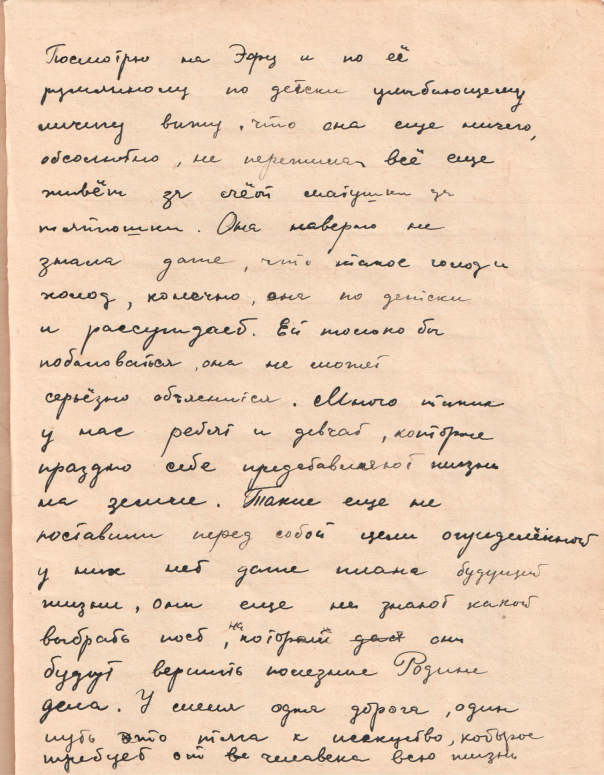 Посмотрю на Эрну и по её
румяному по детски улыбающему
личику вижу, что она еще ничего,
абсолютно, не пережила, всё еще
живёт за счёт матушки да
тятюшки. Она наверно не
знала даже, что такое голод и
холод, конечно, она по детски
и рассуждает. Ей только бы
побаловаться, она не может
серьёзно объяснится. Много таких
у нас ребят и девчат, которые
праздно себе представляют жизнь
на земле. Такие еще не
поставили перед собой цели определённой
у них нет даже плана будущей
жизни, они еще не знают какой
выбрать пост, на котором они
будут вершить полезные Родине
дела. У меня одна дорога, один
путь это тяга к исскуству, которое
требует от человека всю жизнь